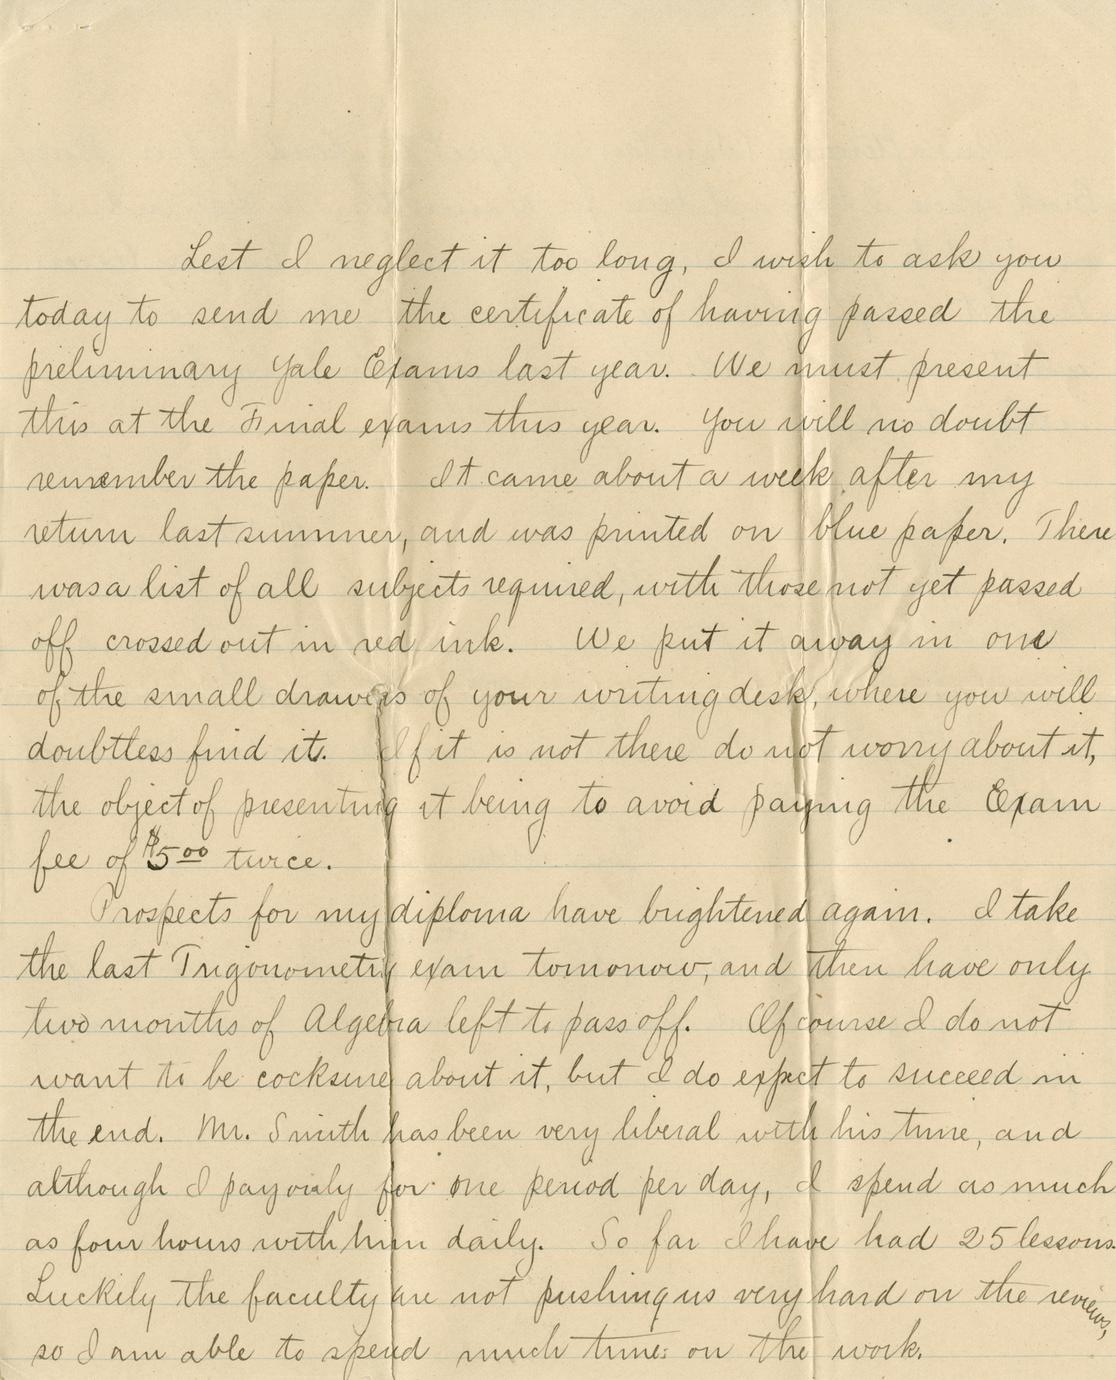 Lest I neglect it too long, I wish to ask you
today to send me the certificate of having passed the
preliminary Yale Exams last year. We must present
this at the Final exams this year. You will no doubt
remember the paper. It came about a week after my
return last summer, and was printed on blue paper. There
was a list of all subjects required, with those not yet passed
off crossed out in red ink. We put it away in one
of the small drawers of your writing desk, where you will
doubtless find it. If it is not there do not worry about it,
the object of presenting it being to avoid paying the Exam
fee of $5.00 twice.
Prospects for my diploma have brightened again. I take
the last Trigonometry exam tomorrow, and then have only
two months of Algebra left to pass off. Of course I do not
want to be cocksure about it, but I do expect to succeed in
the end. Mr. Smith has been very liberal with his time, and
although I pay only for one period per day, I spend as much
as four hours with him daily. So far I have had 25 lessons.
Luckily the faculty are not pushing us very hard on the reviews,
so I am able to spend much time on the work.